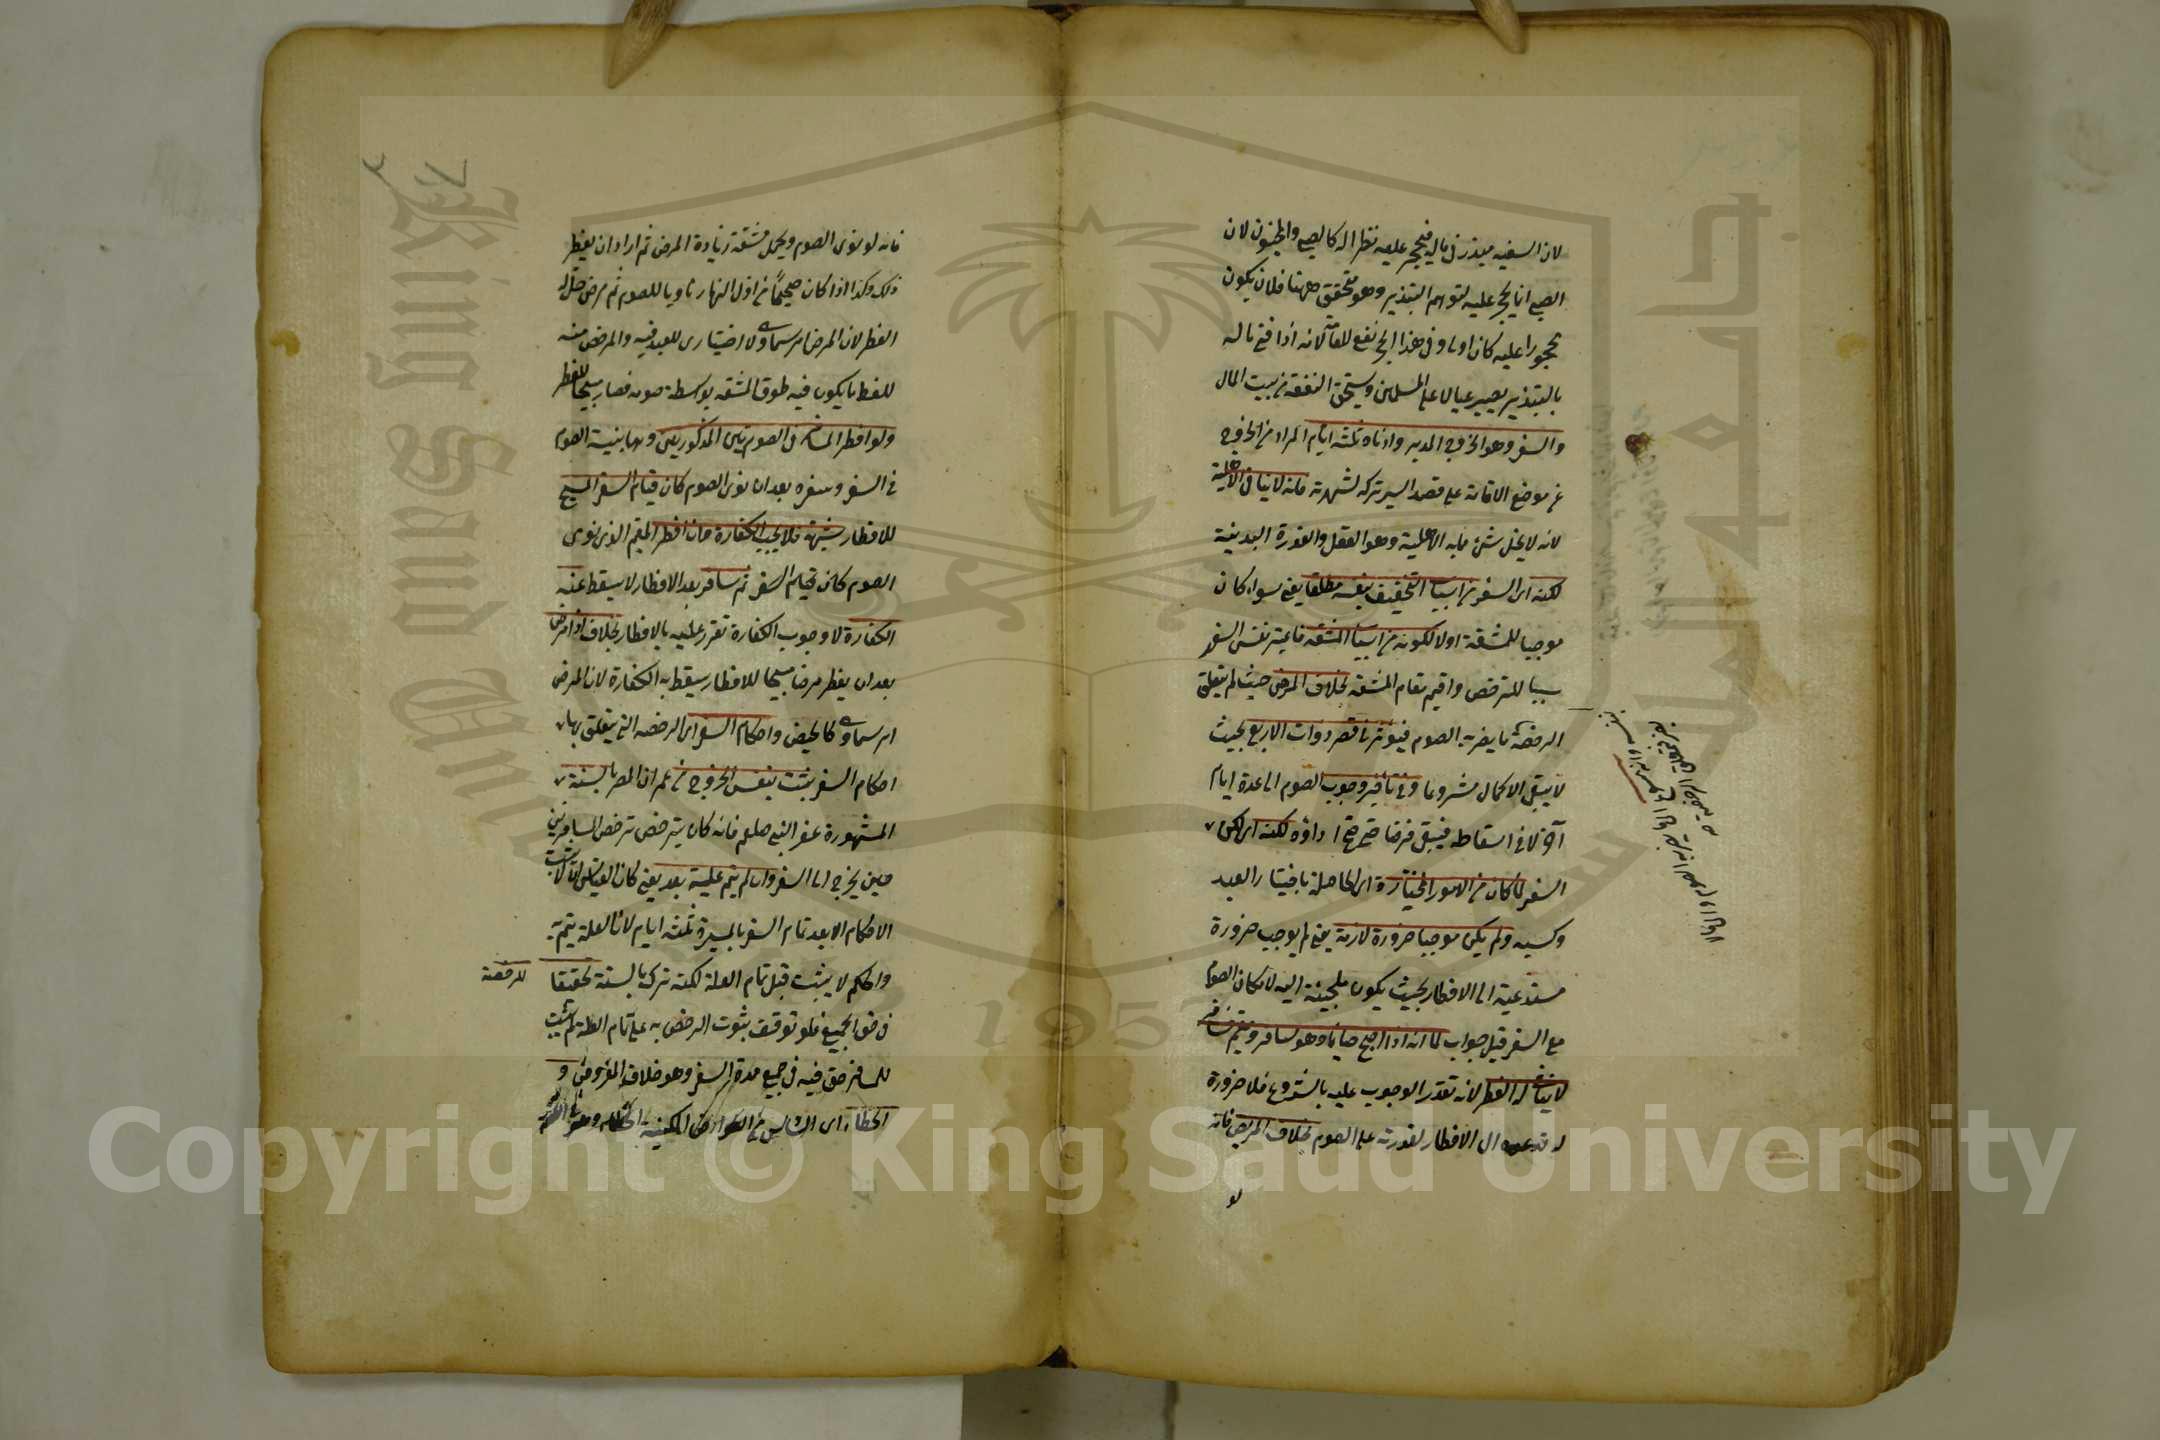 لان السفيه مبذر في ماله فيحجر عليه نظرا له كالصبي والمجنون لان
الصبي انما يحجر عليه لتوهم التبذير وهو متحقق ههنا فلان يكون
محجورا عليه كان اولى وفي هذا الحجر نفع للعامة لانه اذا افنى ماله
بالتبذير يصير عيالا على المسلمين ويستحق النفقة من بيت المال
والسفر وهو الخروج المديد وادناه ثلثة ايام المراد من الخروج
عن موضع الاقامة على قصد السير تركه لشهرته فانه لا ينافي الاهلية
لانه لا يخل شئ مما به الاهلية وهو العقل والقدرة البدنية
لكنه اي السفر من اسباب التخفيف بنفسه مطلقا يعني سواء كان
موجبا للمشقة اولا لكونه من اسباب المشقة فاعتبر نفس السفر
سببا للترخص واقيم مقام المشقة بخلاف المرض حيث لم يتعلق
الرخصة بما يضر به الصوم فيؤثر في قصر ذوات الاربع بحيث
لا يبقى الاكمال مشروعا وفي تاخير وجوب الصوم الى عدة ايام
آخر لا في اسقاطه فيبقى فرضا حتى صح اداؤه لكنه اي لكن
السفر لما كان من الامور المختارة اي الحاصلة باختيار العبد
وكسبه ولم يكن موجبا ضرورة لازمة يعني لم يوجب ضرورة
مستدعية الى الافطار بحيث يكون ملجئة اليه لامكان الصوم
مع السفر قيل جواب لما انه اذا اصبح صائما وهو مسافر ومقيم فسافر
لا يباح له الفطر لانه تقرر الوجوب عليه بالشروع فلا ضرورة
له تدعوه الى الافطار لقدرته على الصوم بخلاف المريض فانه
لو
فانه لو نوى الصوم وتحمل مشقة زيادة المرض ثم اراد ان يفطر
ذلك وكذا اذا كان صحيحا من اول النهار ناويا للصوم ثم مرض حل له
الفطر لان المرض امر سماوي لا اختياري للعبد فيه والمرض منه
للفطر ما يكون فيه طوق المشقة بواسطة صومه فصار مبيحا للفطر
ولو افطر المسافر في الصورتين المذكورتين وهما بنية الصوم
في السفر وسفره بعد ان نوى الصوم كان قيام السفر المبيح
للافطار شبهة فلا يجب الكفارة وان افطر المقيم الذي نوى
الصوم كان قيام السفر ثم سافر بعد الافطار لا يسقط عنه
الكفارة لا وجوب الكفارة تقرر عليه بالافطار بخلاف اذا مرض
بعد ان يفطر مرضا مبيحا للافطار يسقط به الكفارة لان المرض
امر سماوي كالحيض واحكام السفر اي الرخصة التي يتعلق بها
احكام السفر يثبت بنفس الخروج من عمران المصر بالسنة
المشهورة عن النبي صلعم فانه كان يترخص ترخص المسافرين
حين يخرج الى السفر وان لم يتم علية بعد يعني كان القياس ان لا يثبت
الاحكام الا بعد تمام السفر بالمسيرة ثلثة ايام لان العلة يتم به
والحكم لا يثبت قبل تمام العلة لكنه ترك بالسنة تحقيقا للرخصة
في حق الجميع فلو توقف ثبوت الرخص به على تمام العلة لم يثبت
للمسافر حق فيه في جميع مدة السفر وهو خلاف المفروض و
الخطاء اي السادس من العوارض المكتسبة الخطاء
Copyright © King Saud University
King Saud University
1957